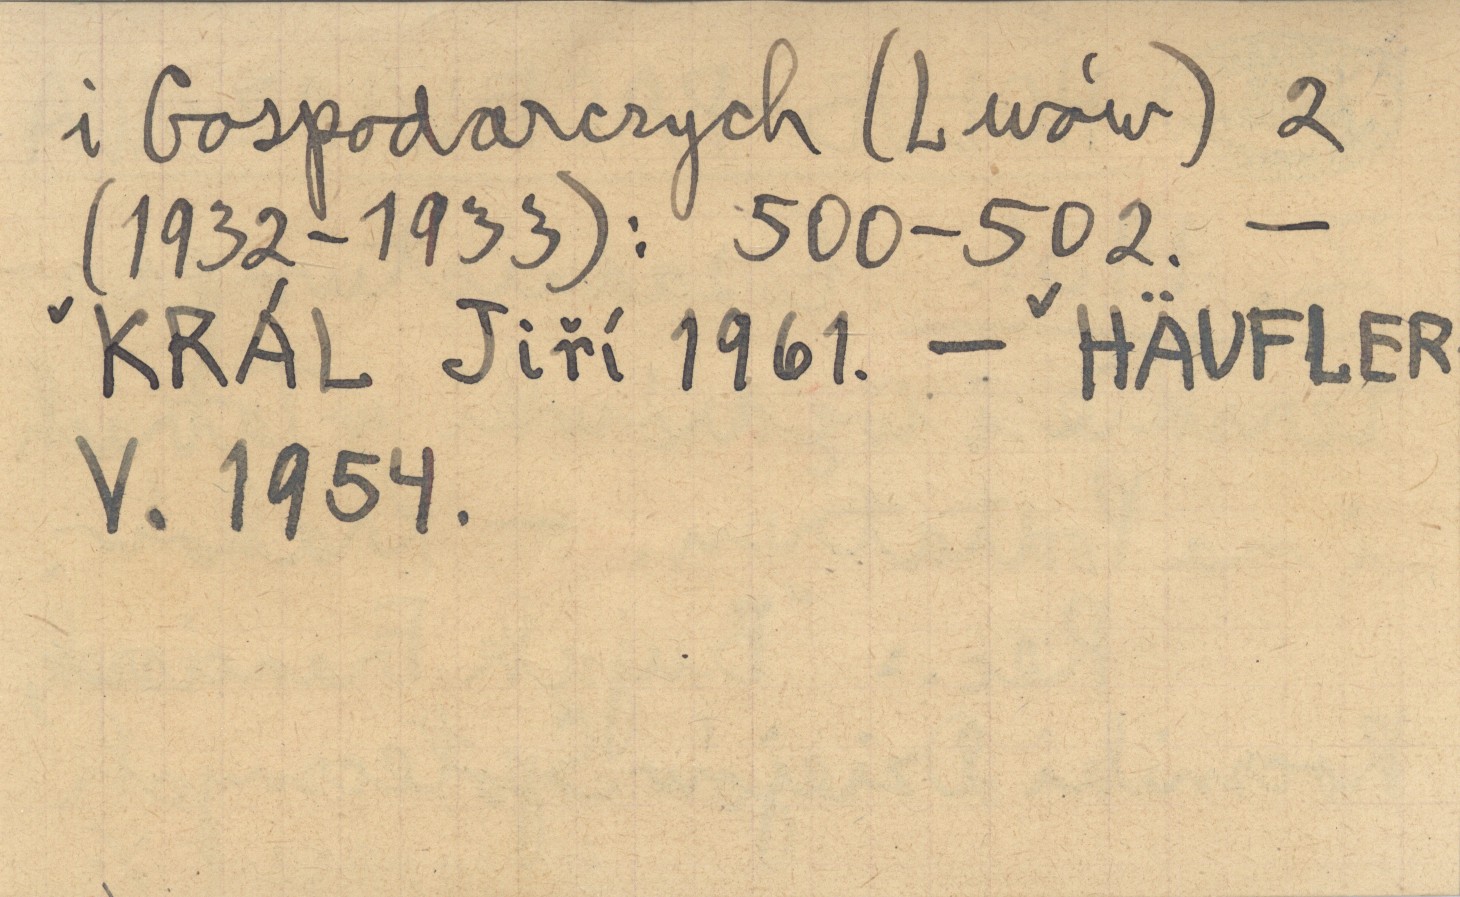 i Gospodarczych (Lwów) 2
(1932-1933): 500-502. —
✓KRÁL Jiří 1961. — ✓HÄUFLER
V. 1954.